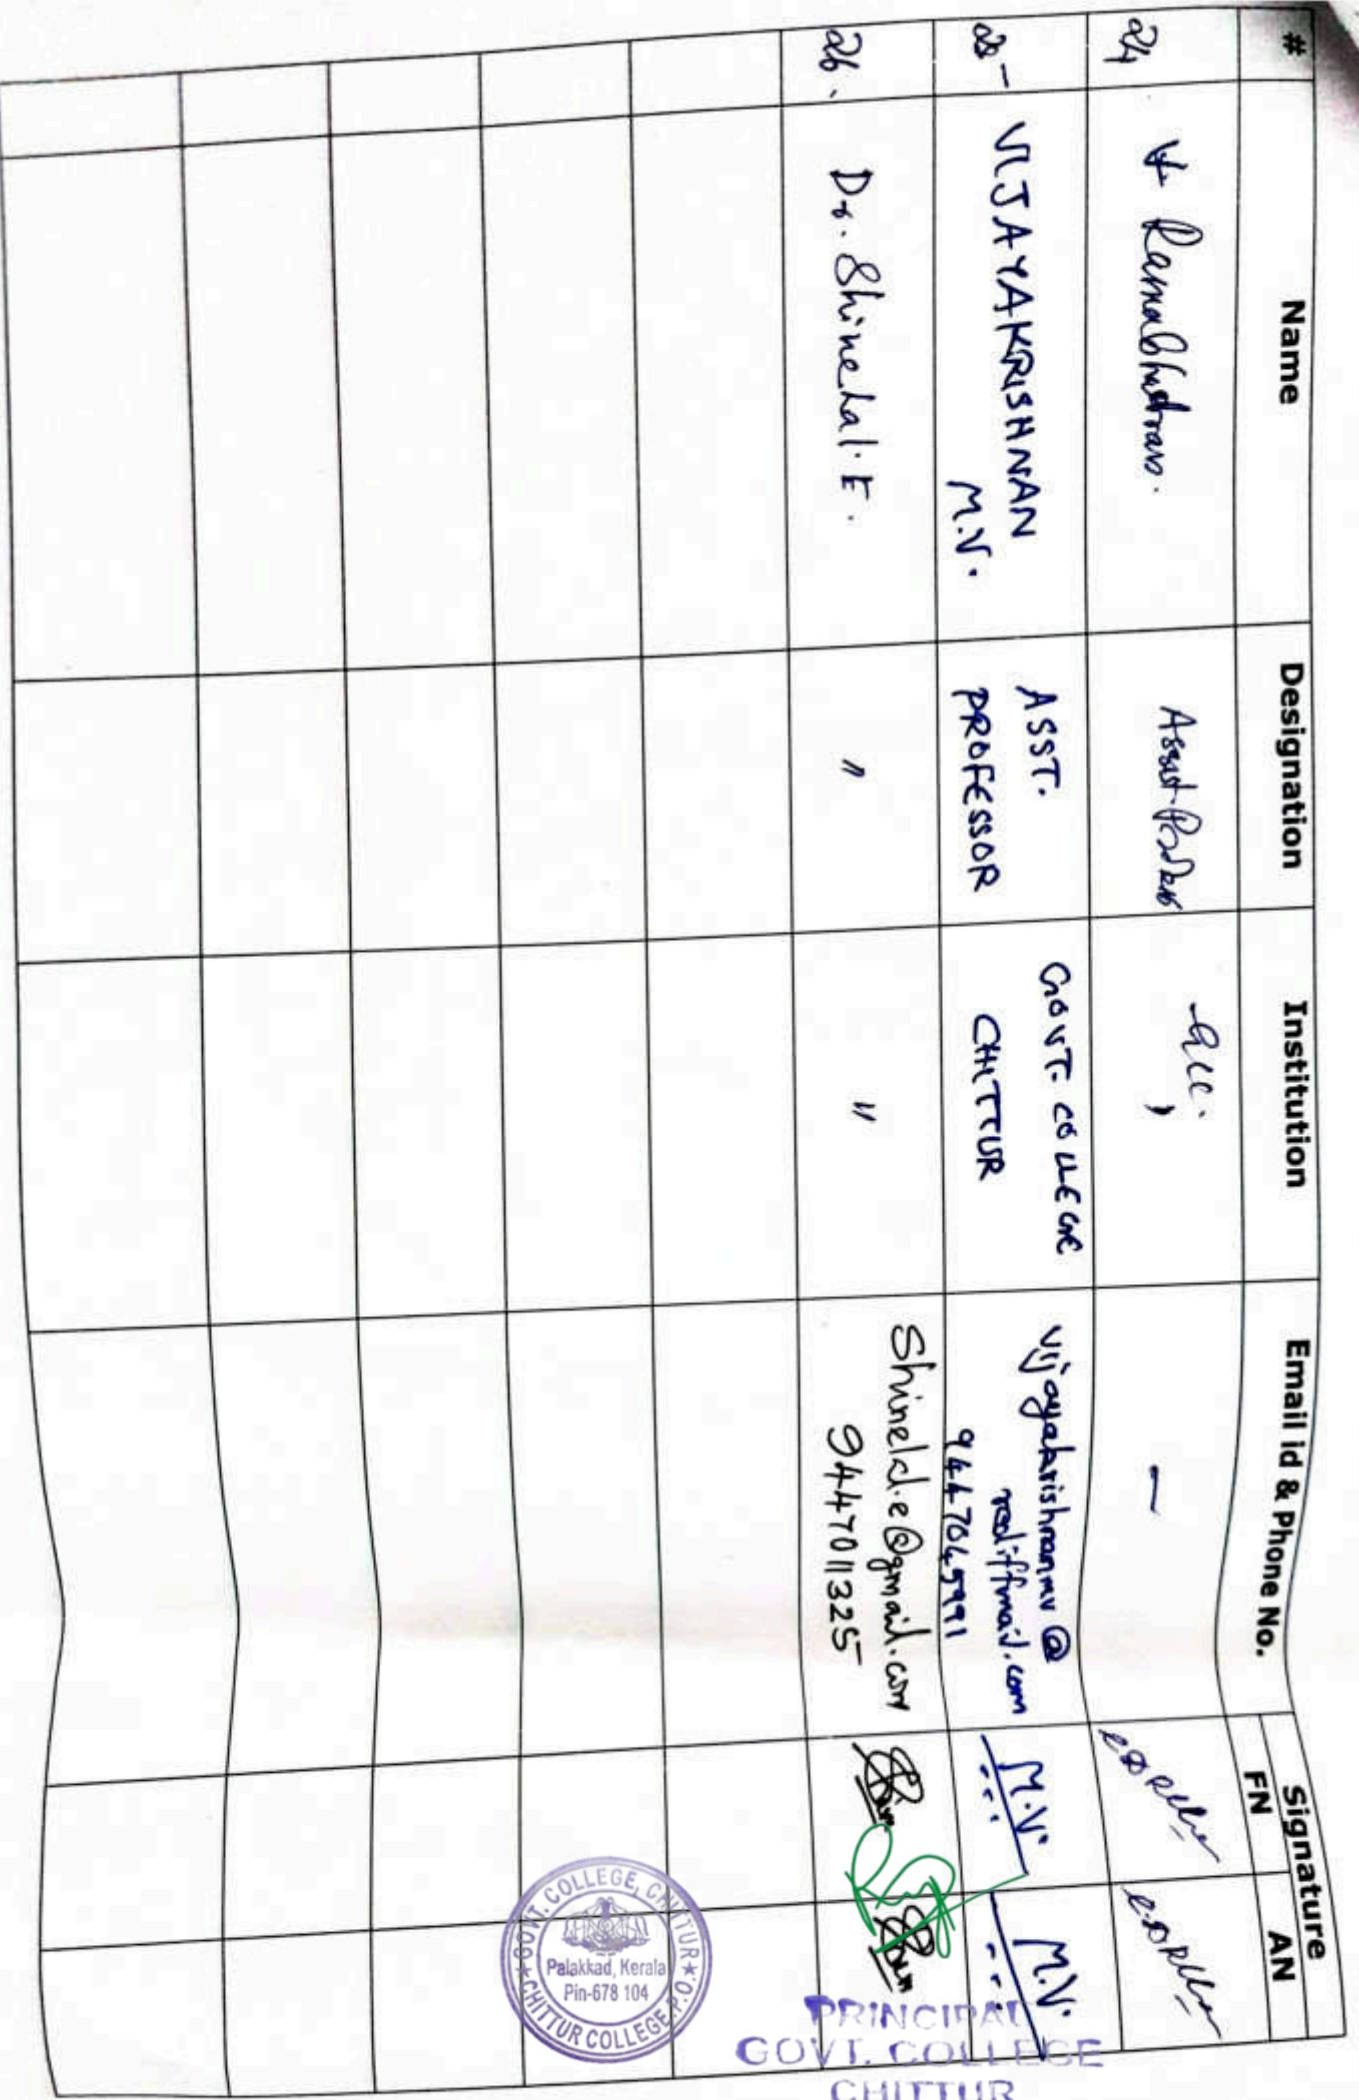 # Name Designation Institution Email id & Phone No. Signature
FN AN
24 Ramabhadran. Assist. Professor GCC,
25- VIJAYAKRISHNAN M.V. ASST. PROFESSOR GOVT. COLLEGE CHITTUR vijayakrishnanmv@
rediffmail.com
M.V. M.V.
26. Dr. Shinelal. E. " " Shinelal.e@gmail.com
9447011325
GOVT. COLLEGE, CHITTUR
Palakkad, Kerala
Pin-678 104
CHITTUR COLLEGE P.O.
PRINCIPAL
GOVT. COLLEGE
CHITTUR